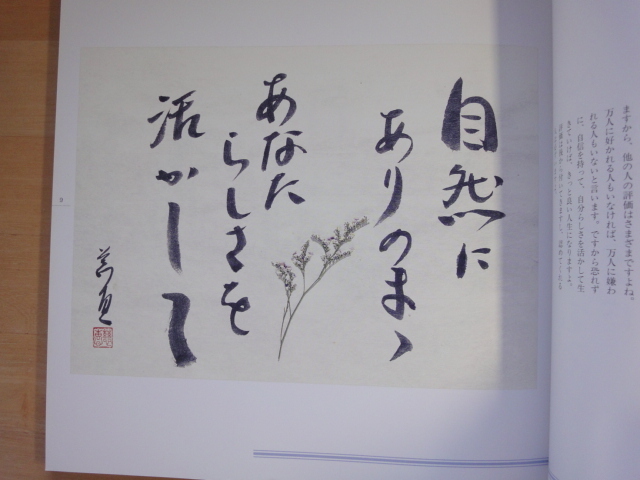 ますから、他の人の評価はさまざまですよね。
万人に好かれる人もいなければ、万人に嫌わ
れる人もいないと言います。ですから恐れず
に、自信を持って、自分らしさを活かして生
きていけば、きっと良い人生になりますよ。
自然に
ありのまゝ
あなた
らしさを
活かして